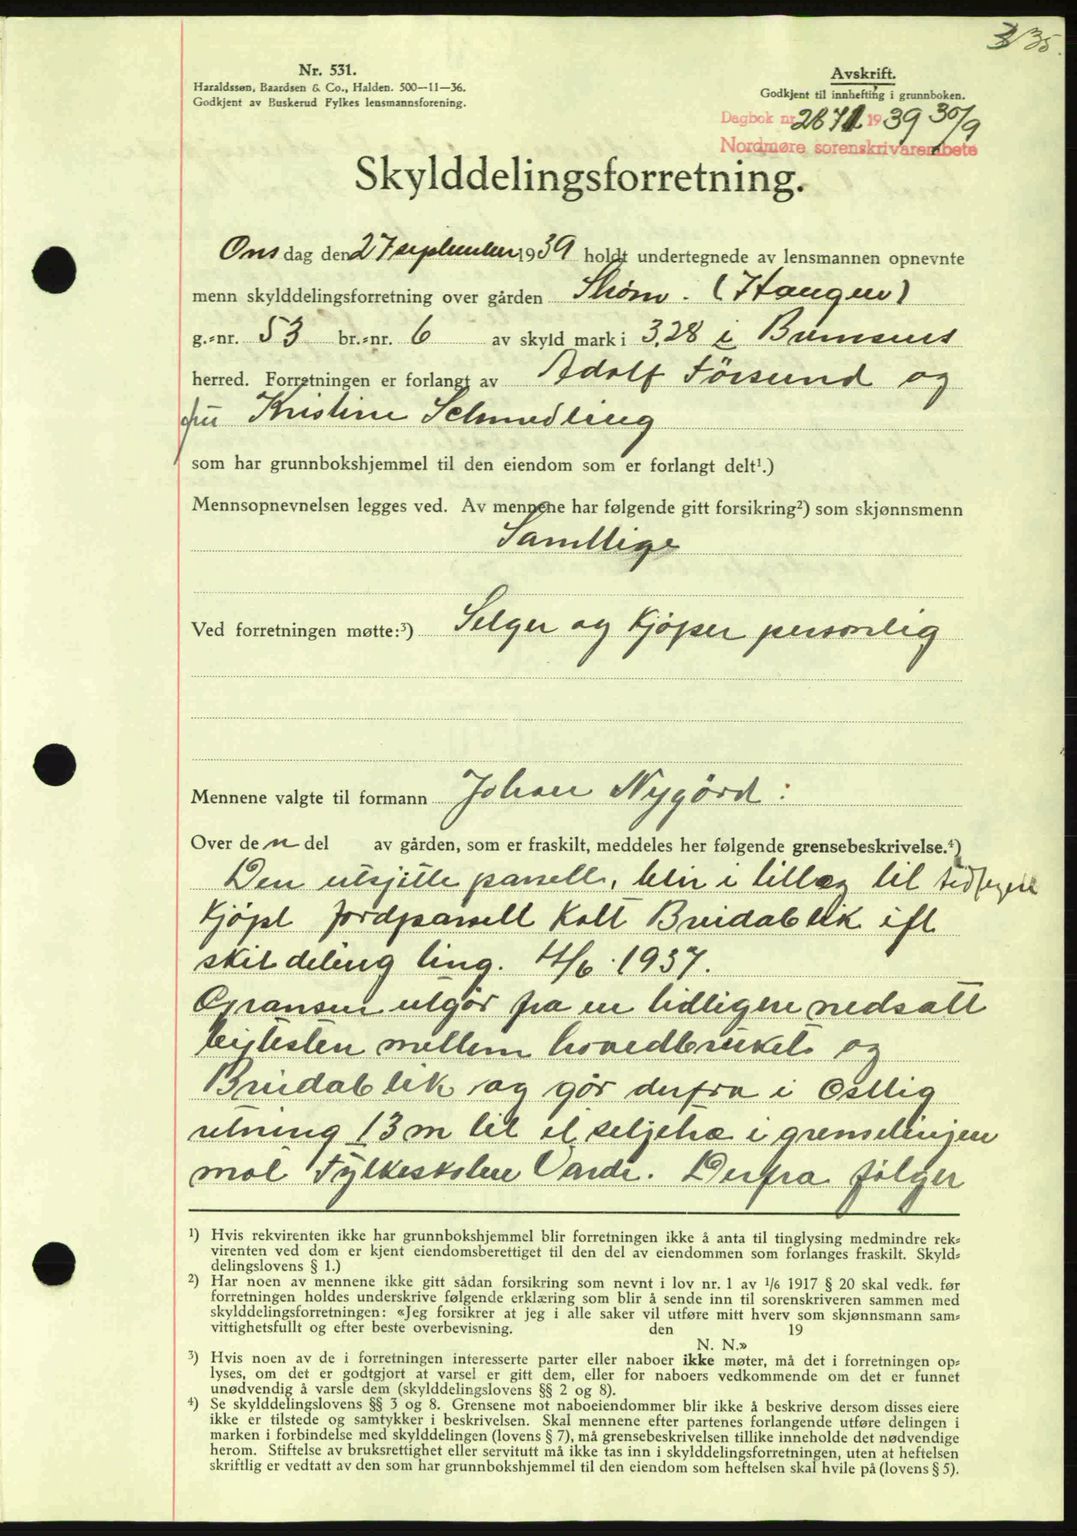 335.
Nr. 531.
Haraldssøn, Baardsen & Co., Halden. 500—11—36.
Godkjent av Buskerud Fylkes lensmannsforening.
Avskrift.
Godkjent til innhefting i grunnboken.
Dagbok nr. 2871 1939 30/9
Nordmøre sorenskrivarembete
Skylddelingsforretning.
Ons dag den 27 september 1939 holdt undertegnede av lensmannen opnevnte
menn skylddelingsforretning over gården Strøm. (Haugen)
g.-nr. 53 br.-nr. 6 av skyld mark i 3,28 i Bremsnes
herred. Forretningen er forlangt av Adolf Försund og
fru Kristine Schmedling
som har grunnbokshjemmel til den eiendom som er forlangt delt¹.)
Mennsopnevnelsen legges ved. Av mennene har følgende gitt forsikring²) som skjønnsmenn
Samtlige
Ved forretningen møtte:³) Selger og Kjöper personlig
Mennene valgte til formann Johan Nygård:
Over den del av gården, som er fraskilt, meddeles her følgende grensebeskrivelse.⁴)
Den utsjitte parsell, blir i tillæg til tidligere
Kjöpt Jordparsell Kalt Breidablik ifl
skildeling ting. 4/6. 1937.
Gransen utgör fra en tidligere nedsatt
bytesten mellem hovedbruket og
Breidablik og gör derfra i Ostlig
retning 13 m til et seljetræ i grenselinjen
mot Fylkesskolen Varde. Derfra fölger
¹) Hvis rekvirenten ikke har grunnbokshjemmel blir forretningen ikke å anta til tinglysing medmindre rek-
virenten ved dom er kjent eiendomsberettiget til den del av eiendommen som forlanges fraskilt. Skyld-
delingslovens § 1.)
²) Har noen av mennene ikke gitt sådan forsikring som nevnt i lov nr. 1 av 1/6 1917 § 20 skal vedk. før
forretningen holdes underskrive følgende erklæring som blir å sende inn til sorenskriveren sammen med
skylddelingsforretningen: «Jeg forsikrer at jeg i alle saker vil utføre mitt hverv som skjønnsmann sam-
vittighetsfullt og efter beste overbevisning. den 19
N. N.»
³) Hvis noen av de i forretningen interesserte parter eller naboer ikke møter, må det i forretningen op-
lyses, om det er godtgjort at varsel er gitt dem, eller for naboers vedkommende om det er funnet
unødvendig å varsle dem (skylddelingslovens §§ 2 og 8).
⁴) Se skylddelingslovens §§ 3 og 8. Grensene mot naboeiendommer blir ikke å beskrive dersom disses eiere
ikke er tilstede og samtykker i beskrivelsen. Skal mennene efter partenes forlangende utføre delingen i
marken i forbindelse med skylddelingen (lovens § 7), må grensebeskrivelsen tillike inneholde det nødvendige
herom. Stiftelse av bruksrettighet eller servitutt må ikke tas inn i skylddelingsforretningen, uten at heftelsen
skriftlig er vedtatt av den som har grunnbokshjemmel til den eiendom som heftelsen skal hvile på (lovens § 5).